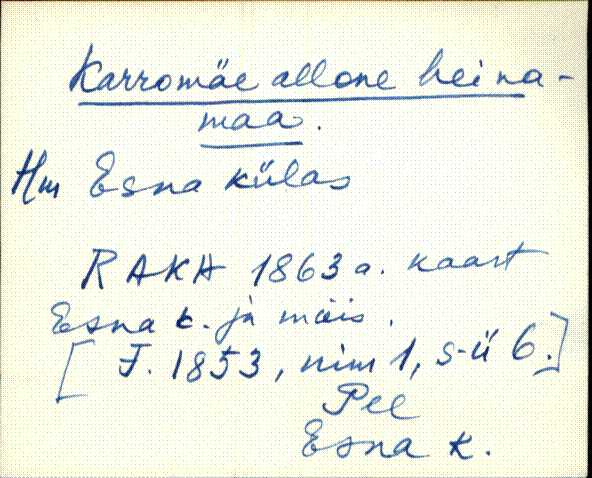 Karromäe allone heina-
maa.
Hm Esna külas
RAKA 1863 a. kaart
Esna k. ja mõis.
[F. 1853, nim 1, s-ü 6.]
Pee
Esna k.